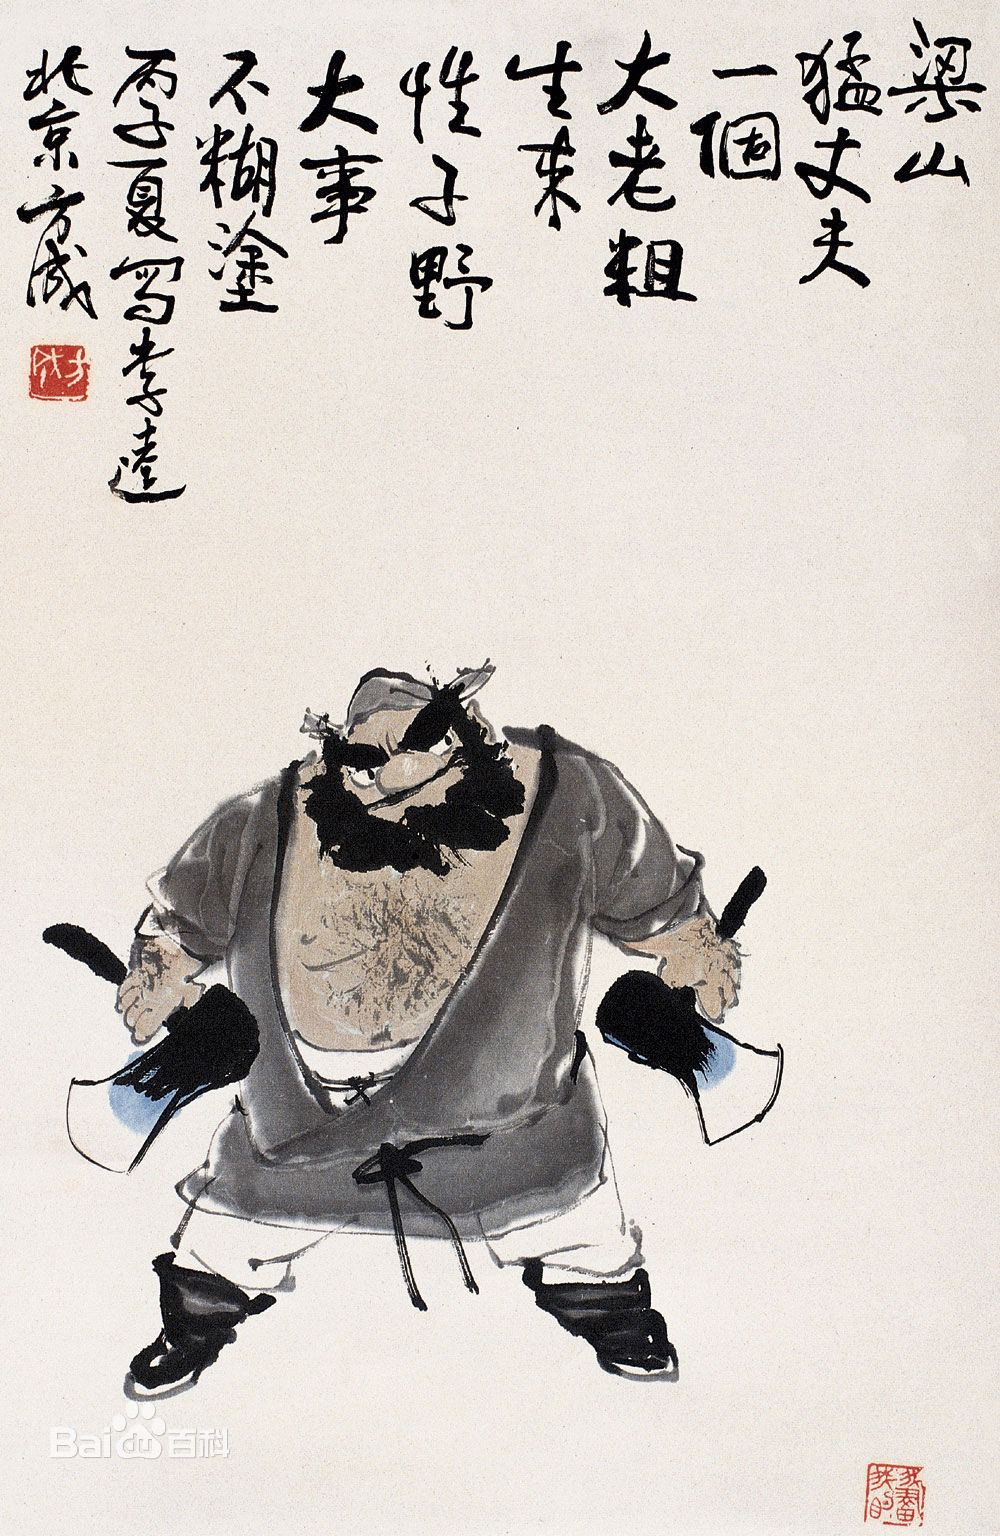 梁山
猛丈夫
一個
大老粗
生来
性子野
大事
不糊塗
丙子夏寫李逵
北京方成
方成
Bai百科